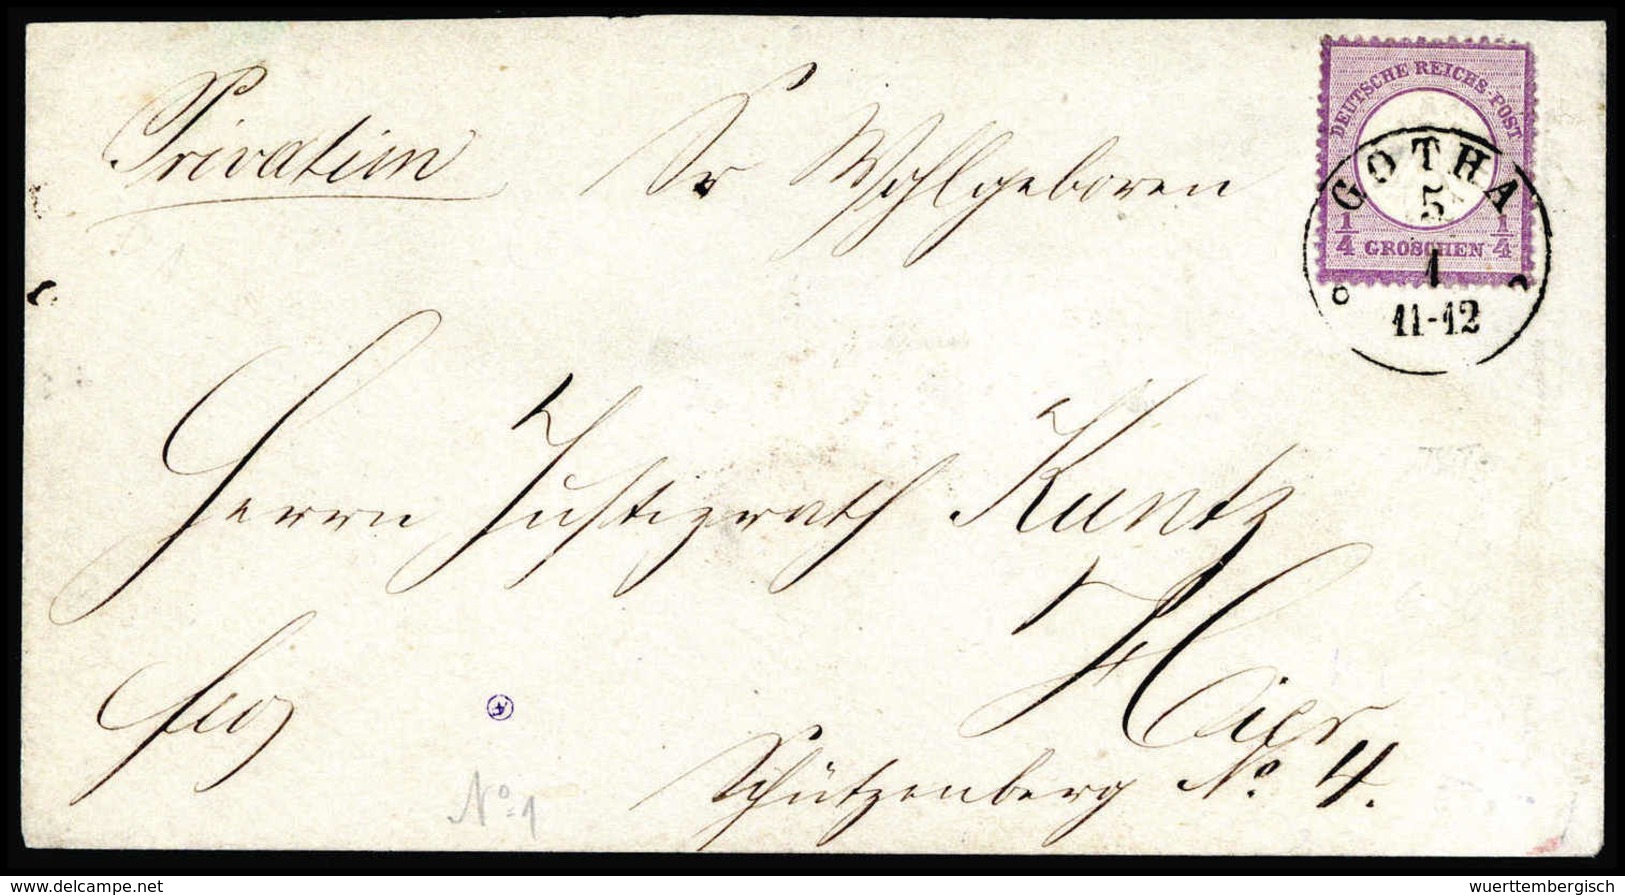 Privatim
Sr Wohlgeboren
DEUTSCHE REICHS-POST
1/4 GROSCHEN 1/4
GOTHA
5
1
11-12
Herrn Justizrath Kuntz
Hier
Schützenberg No. 4.
No 1
www.delcampe.net
wuerttembergisch